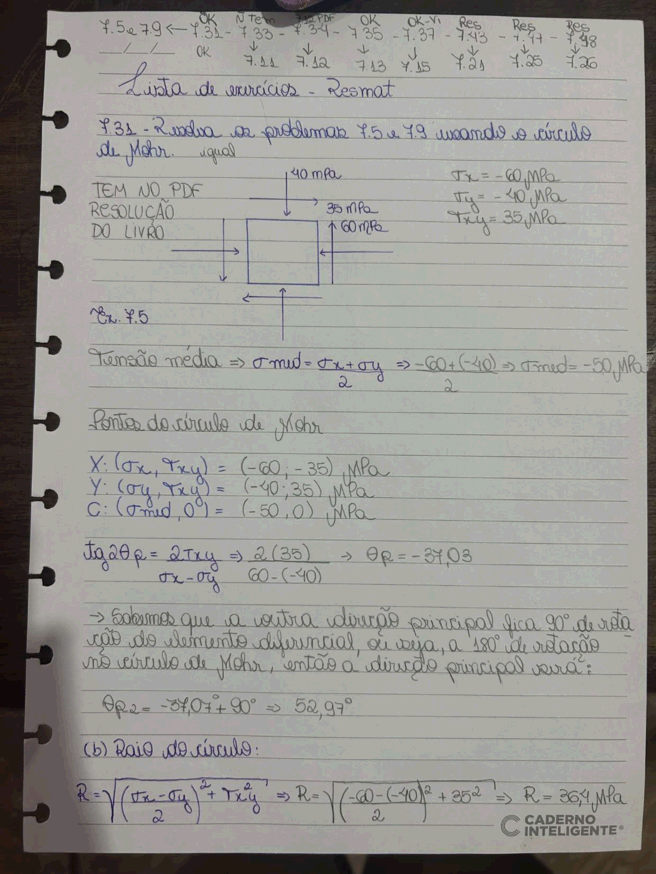 OK N Tem 7.12 PDF OK OK-Vi Res Res Res
7.5 e 7.9 ← 7.31 - 7.33 - 7.34 - 7.35 - 7.37 - 7.43 - 7.47 - 7.48
OK 7.11 7.12 7.13 7.15 7.21 7.25 7.26
Lista de exercícios - Resmat
7.31 - Resolva os problemas 7.5 e 7.9 usando o círculo
de Mohr. igual
40 mPa
TEM NO PDF
RESOLUÇÃO
DO LIVRO
35 mPa
60 mPa
σx = -60 MPa
σy = -40 MPa
τxy = 35 MPa
Ex. 7.5
Tensão média ⇒ σmed = σx + σy / 2 ⇒ -60 + (-40) / 2 ⇒ σmed = -50 MPa
Pontos do círculo de Mohr
X: (σx, τxy) = (-60; -35) MPa
Y: (σy, τxy) = (-40; 35) MPa
C: (σmed, 0) = (-50, 0) MPa
tg2θp = 2τxy / σx - σy ⇒ 2(35) / 60 - (-40) → θp = -37,03
→ Sabemos que a outra direção principal fica 90° de rota
ção do elemento diferencial, ou seja, a 180° de rotação
no círculo de Mohr, então a direção principal será:
θp2 = -37,07° + 90° ⇒ 52,97°
(b) Raio do círculo:
R = √(σx - σy / 2)² + τxy² ⇒ R = √(-60 - (-40) / 2)² + 35² ⇒ R = 36,4 MPa
CADERNO
INTELIGENTE®